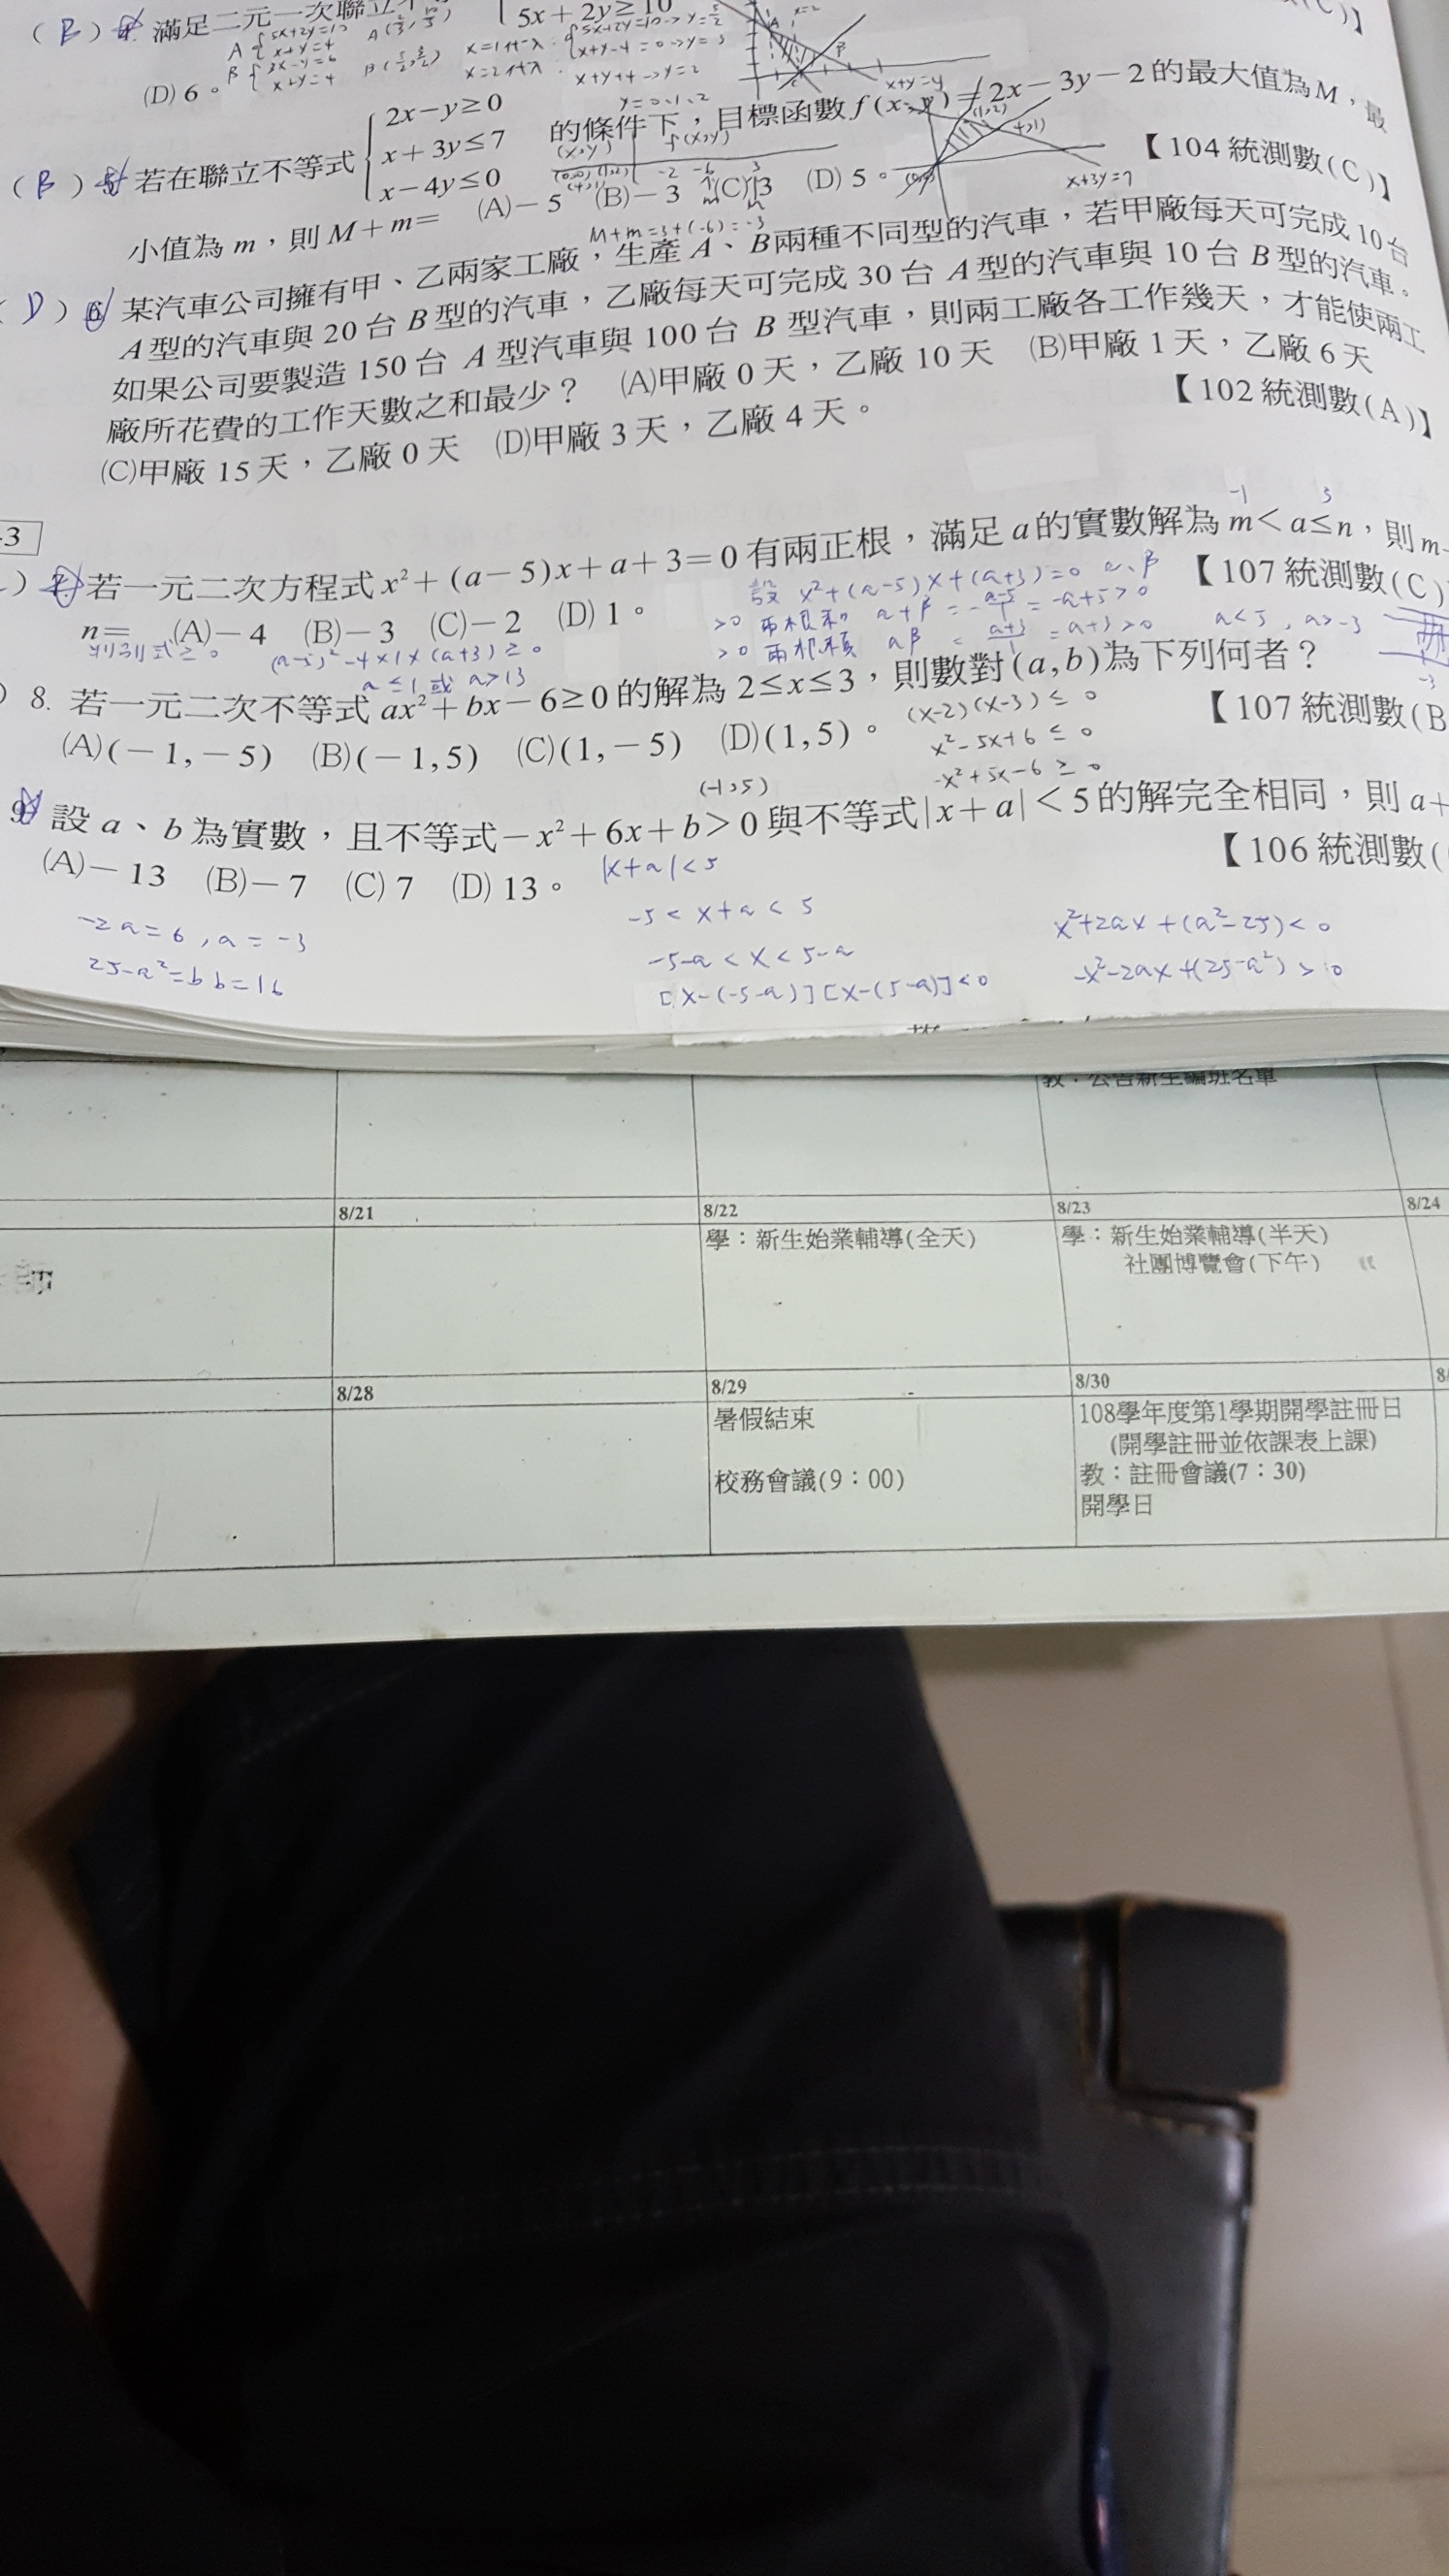 (B) 4. 滿足二元一次聯立
5x+2y≥10
A { 5x+2y=10
x+y=4
B { 3x-y=6
x+y=4
(D) 6。
(B) 5. 若在聯立不等式 { 2x-y≥0
x+3y≤7
x-4y≤0
的條件下，目標函數 f(x,y)=2x-3y-2 的最大值為 M，最
小值為 m，則 M+m= (A)-5 (B)-3 (C) 3 (D) 5。 【104 統測數(C)】
x+3y=7
M+m=3+(-6)=-3
(D) 6. 某汽車公司擁有甲、乙兩家工廠，生產 A、B 兩種不同型的汽車，若甲廠每天可完成 10 台
A 型的汽車與 20 台 B 型的汽車，乙廠每天可完成 30 台 A 型的汽車與 10 台 B 型的汽車。
如果公司要製造 150 台 A 型汽車與 100 台 B 型汽車，則兩工廠各工作幾天，才能使兩工
廠所花費的工作天數之和最少？ (A)甲廠 0 天，乙廠 10 天 (B)甲廠 1 天，乙廠 6 天
(C)甲廠 15 天，乙廠 0 天 (D)甲廠 3 天，乙廠 4 天。 【102 統測數(A)】
-3
) 7. 若一元二次方程式 x²+(a-5)x+a+3=0 有兩正根，滿足 a 的實數解為 m<a≤n，則 m-
n= (A)-4 (B)-3 (C)-2 (D) 1。 【107 統測數(C)
設 x²+(a-5)x+(a+3)=0
>0 兩根和 α+β = -(a-5)/1 = -a+5>0
>0 兩根積 αβ = (a+3)/1 = a+3>0
a<5, a>-3
判別式≥0 (a-5)²-4×1×(a+3)≥0
a≤1 或 a>13
) 8. 若一元二次不等式 ax²+bx-6≥0 的解為 2≤x≤3，則數對(a,b)為下列何者？
(A)(-1,-5) (B)(-1,5) (C)(1,-5) (D)(1,5)。 【107 統測數(B
(x-2)(x-3)≤0
x²-5x+6≤0
-x²+5x-6≥0
(-1,5)
9. 設 a、b 為實數，且不等式-x²+6x+b>0 與不等式|x+a|<5 的解完全相同，則 a+
(A)-13 (B)-7 (C) 7 (D) 13。 【106 統測數(
|x+a|<5
-5<x+a<5
-5-a<x<5-a
[x-(-5-a)][x-(5-a)]<0
x²+2ax+(a²-25)<0
-x²-2ax+(25-a²)>0
-2a=6, a=-3
25-a²=b b=16
教：公告新生編班名單
8/21
8/22
8/23
8/24
學：新生始業輔導(全天)
學：新生始業輔導(半天)
社團博覽會(下午)
8/28
8/29
8/30
暑假結束
校務會議(9：00)
108學年度第1學期開學註冊日
(開學註冊並依課表上課)
教：註冊會議(7：30)
開學日